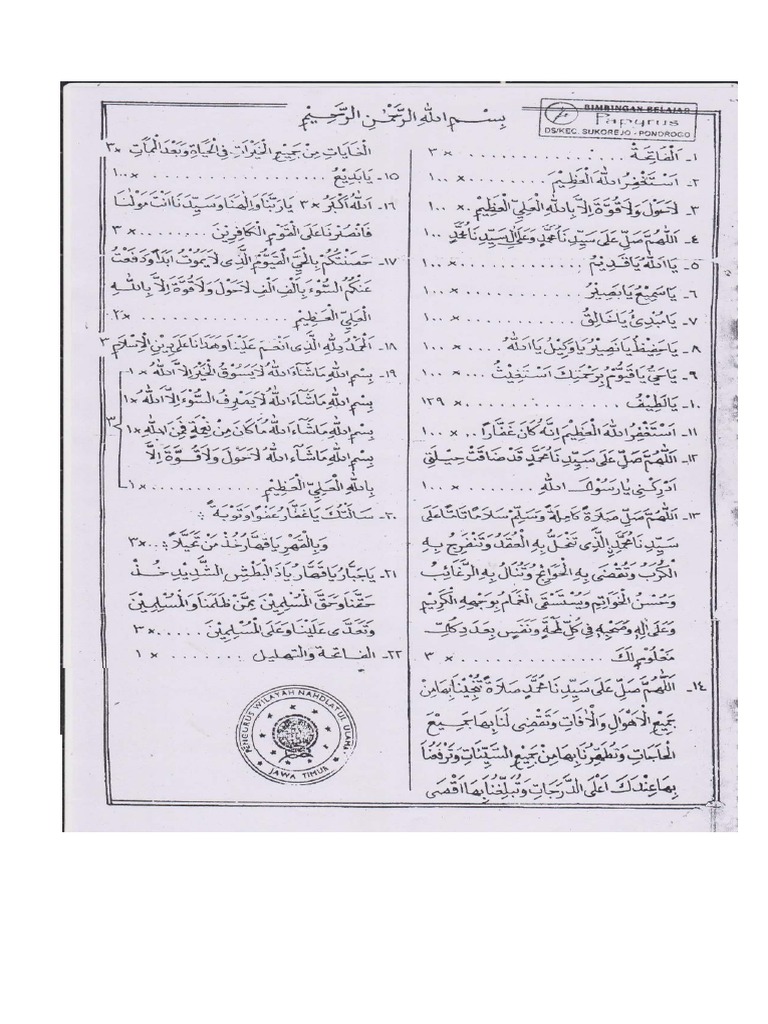 بِسْمِ اللهِ الرَّحْمٰنِ الرَّحِيْمِ
BIMBINGAN BELAJAR
Papyrus
DS/KEC. SUKOREJO - PONOROGO
١- اَلْفَاتِحَةُ . . . . . . . . . . . . . × ٣
٢- اَسْتَغْفِرُ اللهَ الْعَظِيْمَ . . . . . . . . . × ١٠٠
٣- لَاحَوْلَ وَلَا قُوَّةَ اِلَّا بِاللهِ الْعَلِيِّ الْعَظِيْمِ × ١٠٠
٤- اَللّٰهُمَّ صَلِّ عَلَى سَيِّدِنَا مُحَمَّدٍ وَعَلَى اٰلِ سَيِّدِنَا مُحَمَّدٍ ١٠٠
٥- يَا اَللهُ يَا قَدِيْمُ . . . . . . . . . × ١٠٠
٦- يَا سَمِيْعُ يَا بَصِيْرُ . . . . . . . . . × ١٠٠
٧- يَا مُبْدِئُ يَا خَالِقُ . . . . . . . . . × ١٠٠
٨- يَا حَفِيْظُ يَا نَصِيْرُ يَا وَكِيْلُ يَا اَللهُ . . . × ١٠٠
٩- يَا حَيُّ يَا قَيُّوْمُ بِرَحْمَتِكَ اَسْتَغِيْثُ . . × ١٠٠
١٠- يَا لَطِيْفُ . . . . . . . . . . . . × ١٢٩
١١- اَسْتَغْفِرُ اللهَ الْعَظِيْمَ اِنَّهُ كَانَ غَفَّارًا . . × ١٠٠
١٢- اَللّٰهُمَّ صَلِّ عَلَى سَيِّدِنَا مُحَمَّدٍ قَدْ ضَاقَتْ حِيْلَتِيْ
اَدْرِكْنِيْ يَا رَسُوْلَ اللهِ . . . . . . . × ١٠٠
١٣- اَللّٰهُمَّ صَلِّ صَلَاةً كَامِلَةً وَسَلِّمْ سَلَامًا تَامًّا عَلَى
سَيِّدِنَا مُحَمَّدٍ الَّذِيْ تَنْحَلُّ بِهِ الْعُقَدُ وَتَنْفَرِجُ بِهِ
الْكُرَبُ وَتُقْضَى بِهِ الْحَوَائِجُ وَتُنَالُ بِهِ الرَّغَائِبُ
وَحُسْنُ الْخَوَاتِمِ وَيُسْتَسْقَى الْغَمَامُ بِوَجْهِهِ الْكَرِيْمِ
وَعَلَى اٰلِهِ وَصَحْبِهِ فِيْ كُلِّ لَمْحَةٍ وَنَفَسٍ بِعَدَدِ كُلِّ
مَعْلُوْمٍ لَكَ . . . . . . . . . . . × ٣
١٤- اَللّٰهُمَّ صَلِّ عَلَى سَيِّدِنَا مُحَمَّدٍ صَلَاةً تُنْجِيْنَا بِهَا مِنْ
جَمِيْعِ الْاَهْوَالِ وَالْاٰفَاتِ وَتَقْضِى لَنَا بِهَا جَمِيْعَ
الْحَاجَاتِ وَتُطَهِّرُنَا بِهَا مِنْ جَمِيْعِ السَّيِّئَاتِ وَتَرْفَعُنَا
بِهَا عِنْدَكَ اَعْلَى الدَّرَجَاتِ وَتُبَلِّغُنَا بِهَا اَقْصَى
الْغَايَاتِ مِنْ جَمِيْعِ الْخَيْرَاتِ فِى الْحَيَاةِ وَبَعْدَ الْمَمَاتِ × ٣
١٥- يَا بَدِيْعُ . . . . . . . . . . . . × ١٠٠
١٦- اَللهُ اَكْبَرُ × ٣ يَا رَبَّنَا وَاِلٰهَنَا وَسَيِّدَنَا اَنْتَ مَوْلٰنَا
فَانْصُرْنَا عَلَى الْقَوْمِ الْكَافِرِيْنَ . . . . . . × ٣
١٧- حَصَّنْتُكُمْ بِالْحَيِّ الْقَيُّوْمِ الَّذِى لَا يَمُوْتُ اَبَدًا وَدَفَعْتُ
عَنْكُمُ السُّوْءَ بِاَلْفِ اَلْفِ لَاحَوْلَ وَلَا قُوَّةَ اِلَّا بِاللهِ
الْعَلِيِّ الْعَظِيْمِ . . . . . . . . . × ٣
١٨- اَلْحَمْدُ لِلّٰهِ الَّذِى اَنْعَمَ عَلَيْنَا وَهَدَانَا عَلَى دِيْنِ الْاِسْلَامِ ٣
١٩- بِسْمِ اللهِ مَاشَاءَ اللهُ لَا يَسُوْقُ الْخَيْرَ اِلَّا اللهُ × ١
بِسْمِ اللهِ مَاشَاءَ اللهُ لَا يَصْرِفُ السُّوْءَ اِلَّا اللهُ × ١
بِسْمِ اللهِ مَاشَاءَ اللهُ مَا كَانَ مِنْ نِعْمَةٍ فَمِنَ اللهِ × ١
بِسْمِ اللهِ مَاشَاءَ اللهُ لَاحَوْلَ وَلَا قُوَّةَ اِلَّا
بِاللهِ الْعَلِيِّ الْعَظِيْمِ . . . . . . . × ١
٣
٢٠- سَاَلْتُكَ يَا غَفَّارُ عَفْوًا وَتَوْبَةً
وَبِالْقَهْرِ يَا قَهَّارُ خُذْ مَنْ تَحَيَّلَا . . . × ٣
٢١- يَا جَبَّارُ يَا قَهَّارُ يَا ذَا الْبَطْشِ الشَّدِيْدِ خُذْ
حَقَّنَا وَحَقَّ الْمُسْلِمِيْنَ مِمَّنْ ظَلَمَنَا وَالْمُسْلِمِيْنَ
وَتَعَدَّى عَلَيْنَا وَعَلَى الْمُسْلِمِيْنَ . . . . . × ٣
٢٢- الفاتحة والتهليل . . . . . . . × ١
PENGURUS WILAYAH NAHDLATUL ULAMA
JAWA TIMUR